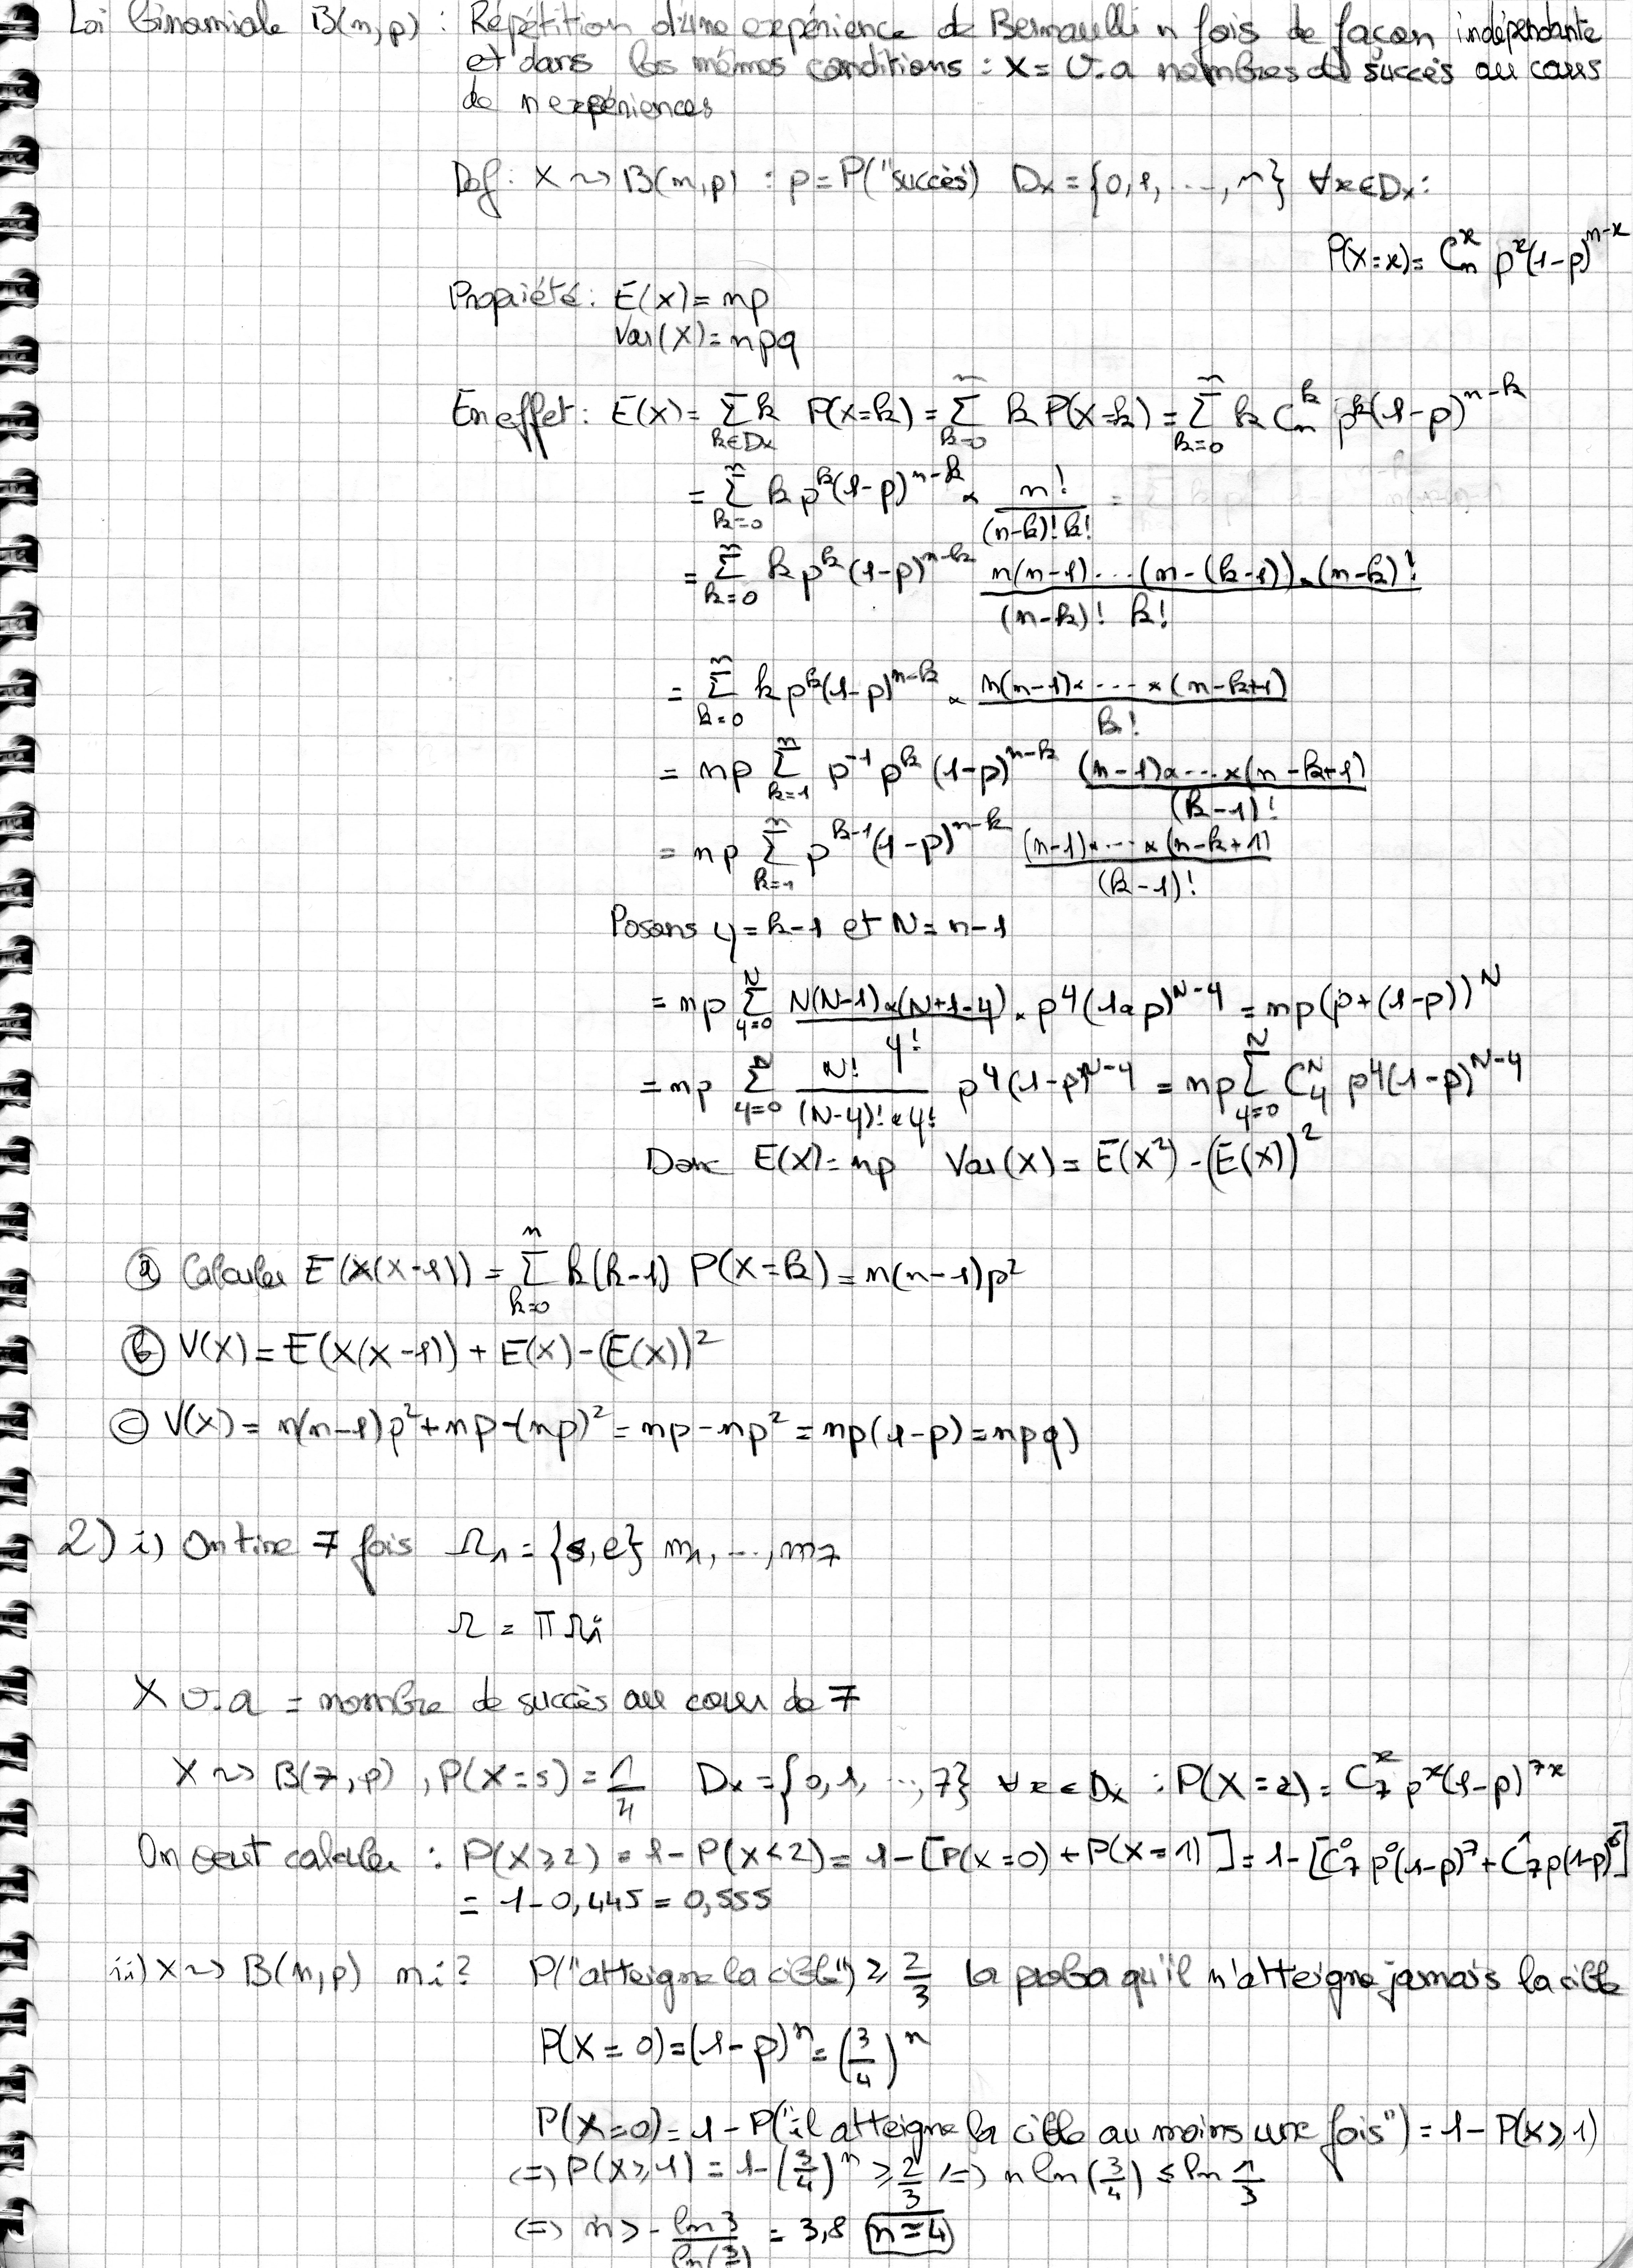 Loi binomiale B(n,p) : Répétition d'une expérience de Bernoulli n fois de façon indépendante
et dans les mêmes conditions : X = v.a nombres de succès au cours
de n expériences
Def : X ~> B(n,p) : p = P("succès") Dx = {0,1, ..., n} ∀x∈Dx :
P(X=x) = C_n^x p^x(1-p)^{n-x}
Propriété : E(X) = np
Var(X) = npq
En effet : E(X) = Σ_{k∈Dx} k P(X=k) = Σ_{k=0}^n k P(X=k) = Σ_{k=0}^n k C_n^k p^k(1-p)^{n-k}
= Σ_{k=0}^n k p^k(1-p)^{n-k} × n!/((n-k)! k!)
= Σ_{k=0}^n k p^k (1-p)^{n-k} (n(n-1)...(n-(k-1)) × (n-k)!)/((n-k)! k!)
= Σ_{k=0}^n k p^k(1-p)^{n-k} × (n(n-1)× ... ×(n-k+1))/k!
= np Σ_{k=1}^n p^{-1} p^k (1-p)^{n-k} ((n-1)× ... ×(n-k+1))/(k-1)!
= np Σ_{k=1}^n p^{k-1}(1-p)^{n-k} ((n-1)× ... ×(n-k+1))/(k-1)!
Posons y = k-1 et N = n-1
= np Σ_{y=0}^N (N(N-1)×(N+1-y))/y! × p^y(1-p)^{N-y} = np(p+(1-p))^N
= np Σ_{y=0}^N N!/((N-y)! × y!) p^y(1-p)^{N-y} = np Σ_{y=0}^N C_y^N p^y(1-p)^{N-y}
Donc E(X) = np Var(X) = E(X²) - (E(X))²
ⓐ Calculer E(X(X-1)) = Σ_{k=0}^n k(k-1) P(X=k) = n(n-1)p²
ⓑ V(X) = E(X(X-1)) + E(X) - (E(X))²
ⓒ V(X) = n(n-1)p² + np - (np)² = np - np² = np(1-p) = npq)
2) i) On tire 7 fois Ω₁ = {s,e} m₁, ..., m₇
Ω = π Ωi
X v.a = nombre de succès au cour de 7
X ~> B(7,p) , P(X=s) = 1/4 Dx = {0,1, ..., 7} ∀x∈Dx : P(X=x) = C_7^x p^x(1-p)^{7-x}
On veut calculer : P(X≥2) = 1 - P(X<2) = 1 - [P(X=0) + P(X=1)] = 1 - [C_7^0 p^0(1-p)^7 + C_7^1 p(1-p)^6]
= 1 - 0,445 = 0,555
ii) X ~> B(n,p) ni ? P("atteigne la cible") ≥ 2/3 la proba qu'il n'atteigne jamais la cible
P(X=0) = (1-p)^n = (3/4)^n
P(X=0) = 1 - P("il atteigne la cible au moins une fois") = 1 - P(X≥1)
<=> P(X≥1) = 1 - (3/4)^n ≥ 2/3 <=> n ln(3/4) ≤ ln 1/3
<=> n > - ln3/ln(3/4) = 3,8 n=4